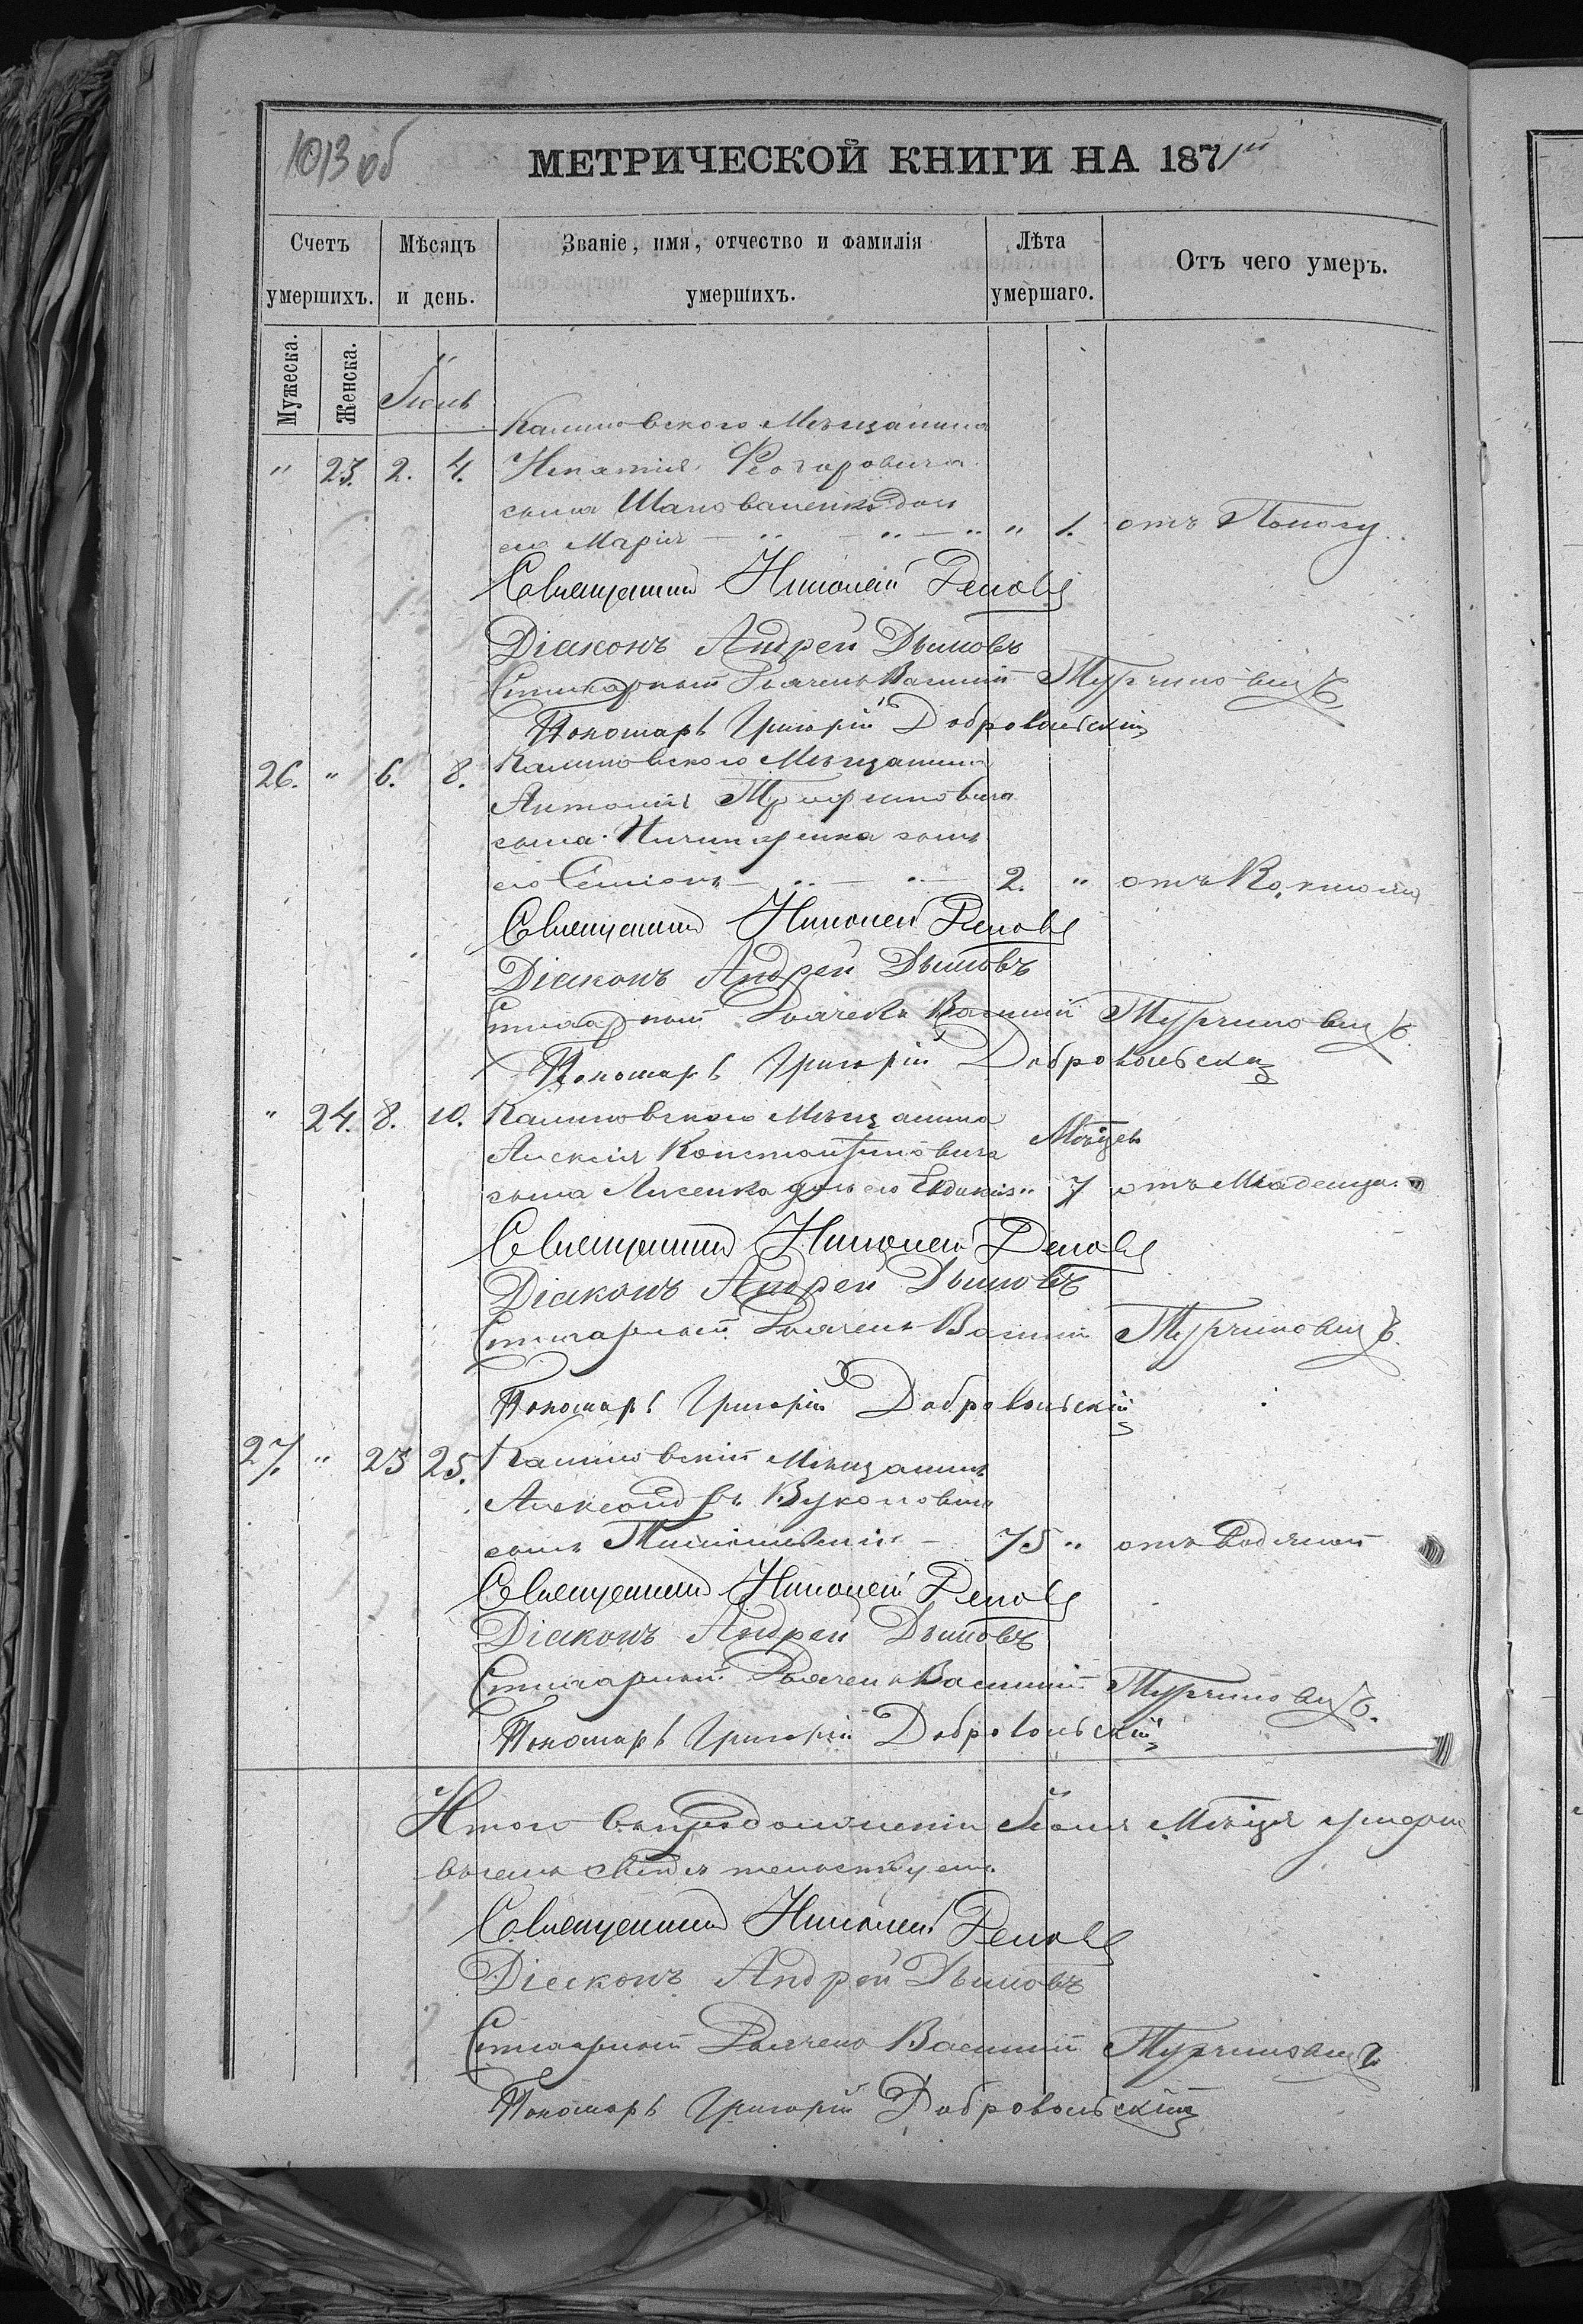 1013 об
МЕТРИЧЕСКОЙ КНИГИ НА 1871й
Счетъ умершихъ.
Мѣсяцъ и день.
Званіе, имя, отчество и фамилія умершихъ.
Лѣта умершаго.
Отъ чего умеръ.
Мужеска.
Женска.
Іюль
Калиновского Мѣщанина
" 23. 2. 4. Игнатія Феодоровича
сына Шаповаленка дочь
его Марія " 1. отъ Поносу
Священникъ Николай
Діаконъ Андрей Дымовъ
Стихарный Дьячекъ Василий
Пономарь Григорій Добровольскій
26. " 6. 8. Калиновского Мѣщанина
Антонія Трофимовича
сына Ничипоренка сынъ
его Семіонъ 2. " отъ
Священникъ Николай
Діаконъ Андрей Дымовъ
Стихарный Дьячекъ Василий
Пономарь Григорій Добровольскій
" 24. 8. 10. Калиновского Мѣщанина
Алексія Константиновича Мѣсяцев
сына Лисенка дочь его Евдокія " 7 отъ Младенца
Священникъ Николай
Діаконъ Андрей Дымовъ
Стихарный Дьячекъ Василий
Пономарь Григорій Добровольскій
27. " 23 25. Калиновский Мѣщанинъ
Александръ Вуколовичъ
сынъ 75 " отъ Водяной
Священникъ Николай
Діаконъ Андрей Дымовъ
Стихарный Дьячекъ Василий
Пономарь Григорій Добровольскій
Итого Іюля Мѣсяца
въ чемъ свидѣтельствуемъ
Священникъ Николай
Діаконъ Андрей Дымовъ
Стихарный Дьячекъ Василий
Пономарь Григорій Добровольскій